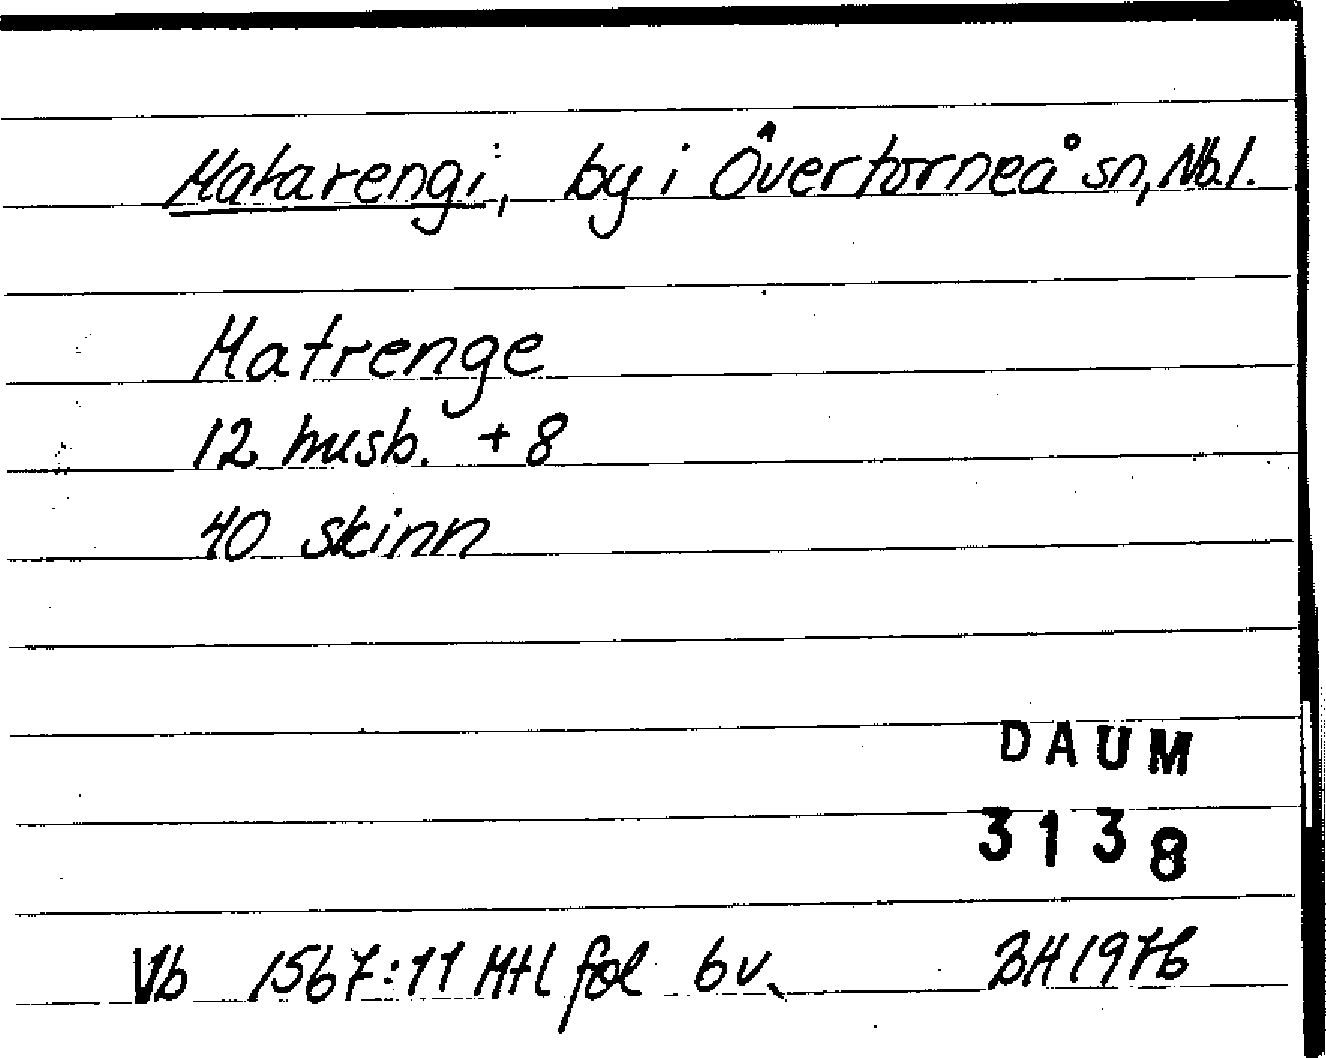 Matarengi, by i Övertorneå sn, Nb.l.
Matrenge
12 husb. + 8
40 skinn
DAUM
3138
Vb 1567:11 Mtl fol 6v.
BH 1976